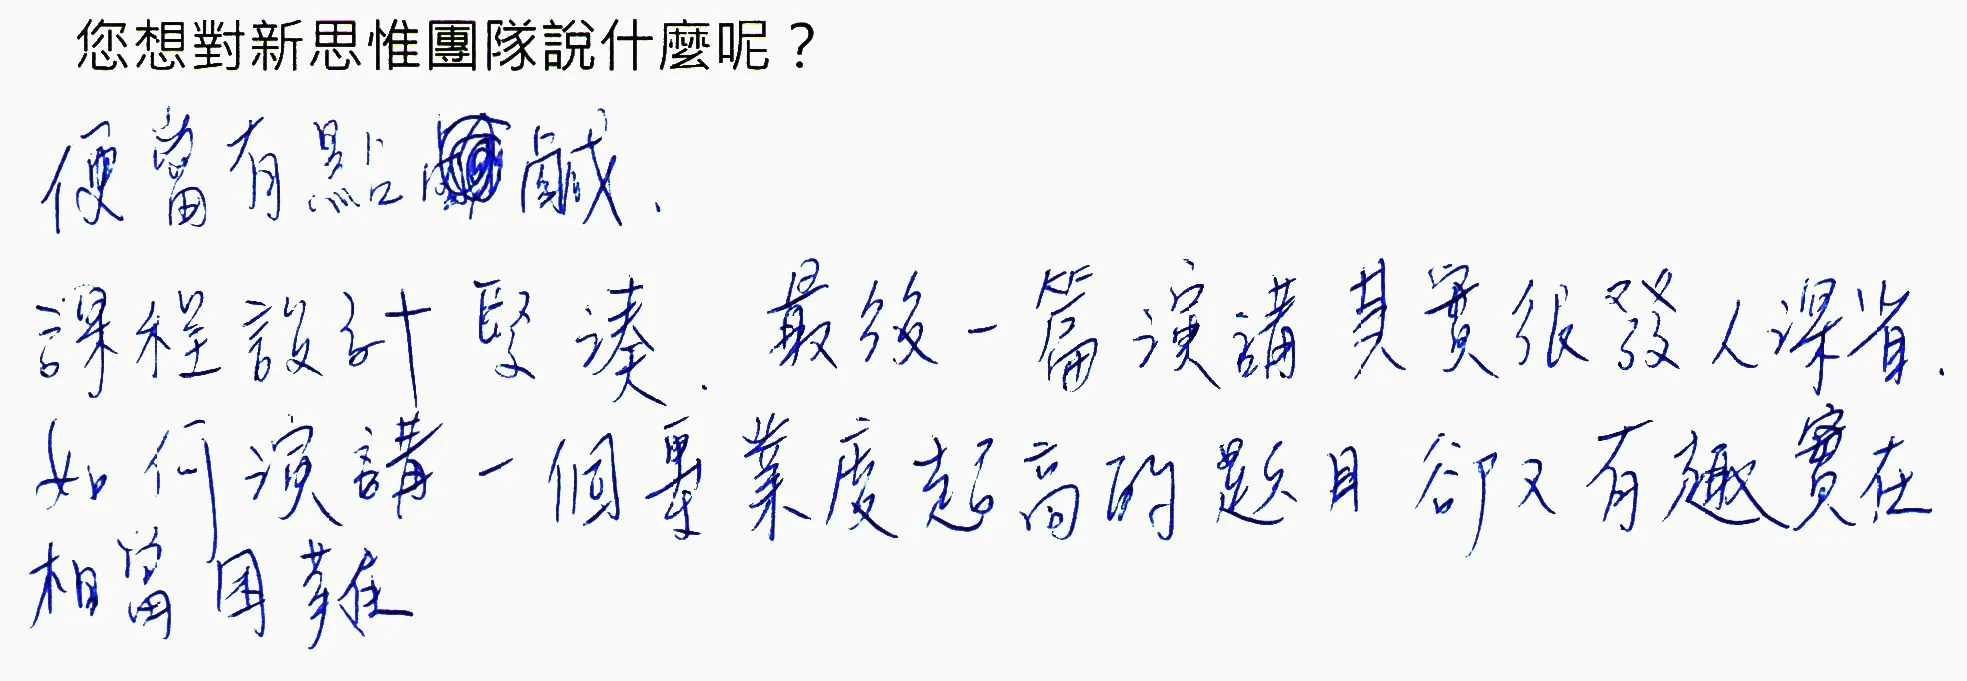 您想對新思惟團隊說什麼呢？
便當有點鹹.
課程設計緊湊. 最後一篇演講其實很發人深省.
如何演講一個專業度超高的題目卻又有趣實在
相當困難